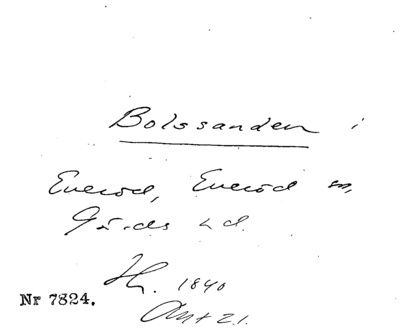 Bolssanden i
Everöd, Everöd sn,
Gärds hd.
1840
Nr 7824.
Ant 21.